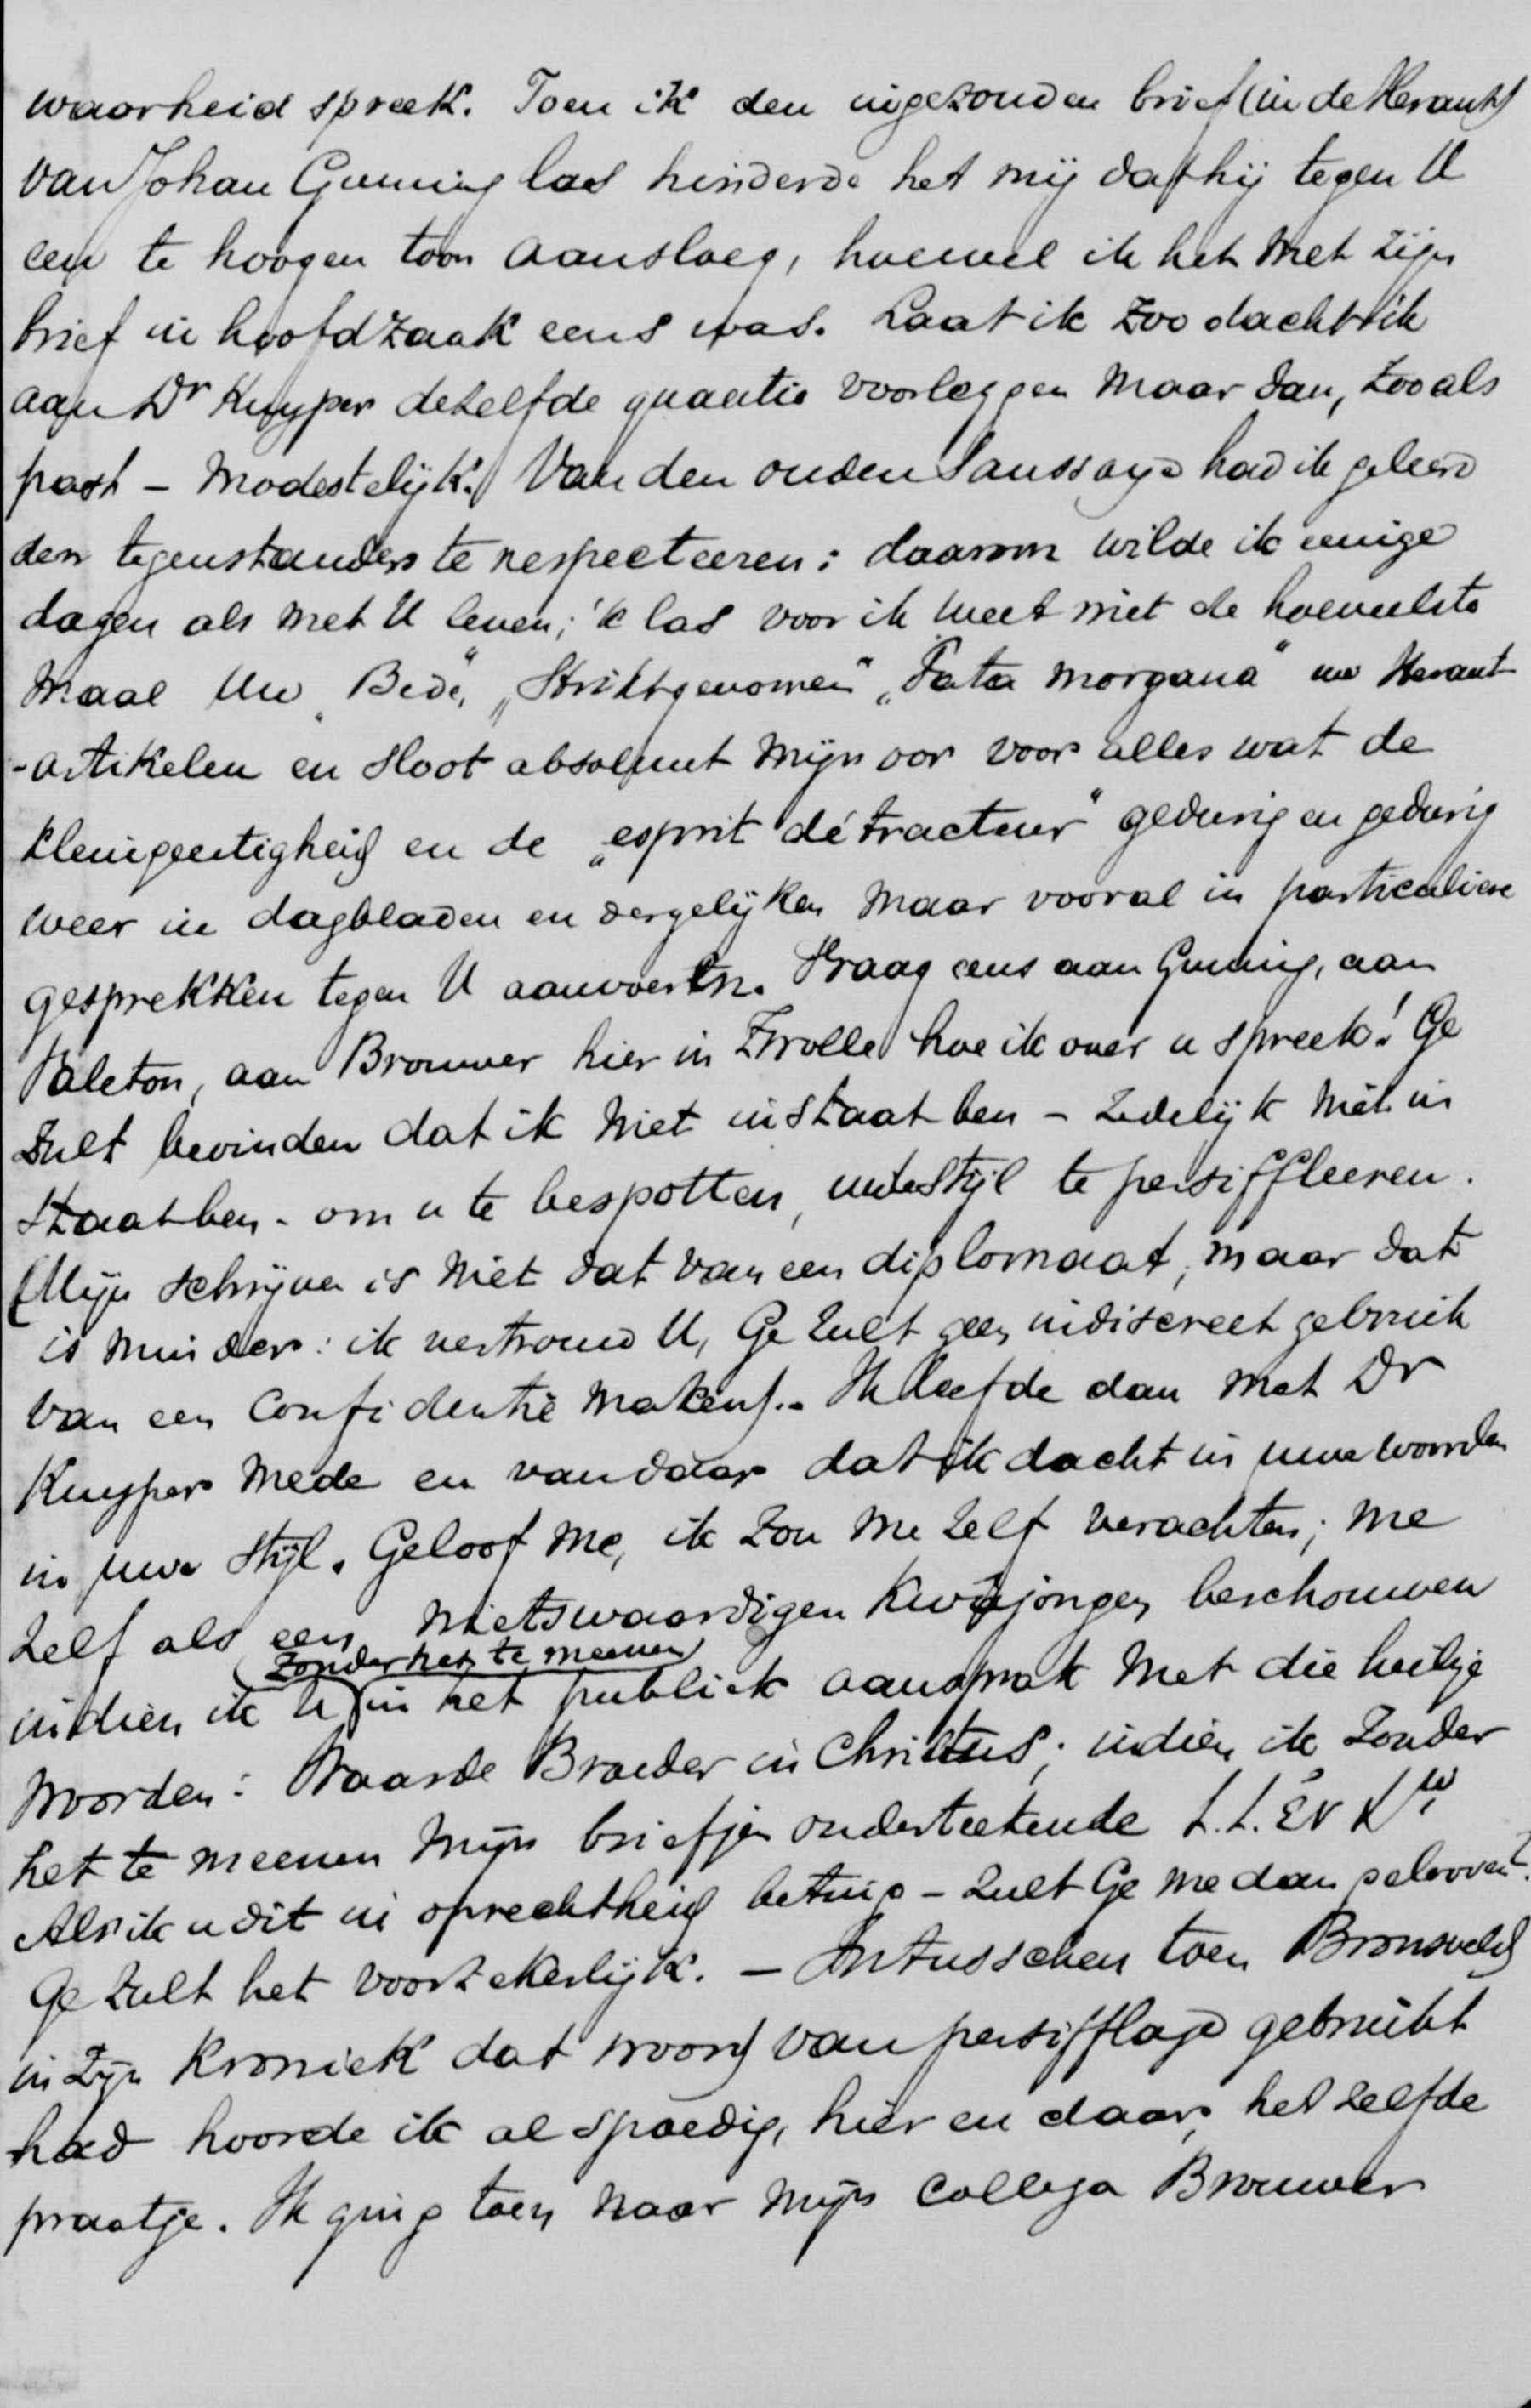 waarheid spreek. Toen ik den ingezonden brief (in de Heraut)
van Johan Gunning las hinderde het mij dat hij tegen U
een te hoogen toon aansloeg, hoewel ik het met zijn
brief in hoofdzaak eens was. Laat ik zoo dacht ik
aan Dr Kuyper dezelfde quaestie voorleggen maar dan, zooals
past – modestelijk. Van den ouden Saussaye had ik geleerd
den tegenstander te respecteeren: daarom wilde ik eenige
dagen als met U leven; 'k las voor ik weet niet de hoeveelste
maal Uw „Bede", „Striktgenomen" „Fata Morgana" uw Heraut
-artikelen en sloot absoluut mijn oor voor alles wat de
kleingeestigheid en de „esprit détracteur" gedurig en gedurig
weer in dagbladen en dergelijken maar vooral in particuliere
gesprekken tegen U aanvoeren. Vraag eens aan Gunning, aan
Valeton, aan Brouwer hier in Zwolle hoe ik over u spreek! Ge
zult bevinden dat ik niet in staat ben – zedelijk niet in
staat ben – om u te bespotten, uw stijl te persiffleeren.
(Mijn schrijven is niet dat van een diplomaat, maar dat
is minder: ik vertrouw U, Ge zult geen indiscreet gebruik
van een confidentie maken). – Ik leefde dan met Dr
Kuyper mede en vandaar dat ik dacht in uwe woorden
in uwe stijl. Geloof me, ik zou me zelf verachten; me
zelf als een nietswaardigen kwajongen beschouwen
zonder het te meenen
indien ik U in het publiek aansprak met die heilige
woorden: Waarde Broeder in Christus; indien ik zonder
het te meenen mijn briefjen onderteekende t.t. ἐν Χῳ
Als ik u dit in oprechtheid betuig – zult Ge me dan gelooven?
Ge zult het voorzekerlijk. – Intusschen toen Bronsveld
in zijn Kroniek dat woord van persifflage gebruikt
had hoorde ik al spoedig, hier en daar, hetzelfde
praatje. Ik ging toen naar mijn collega Brouwer